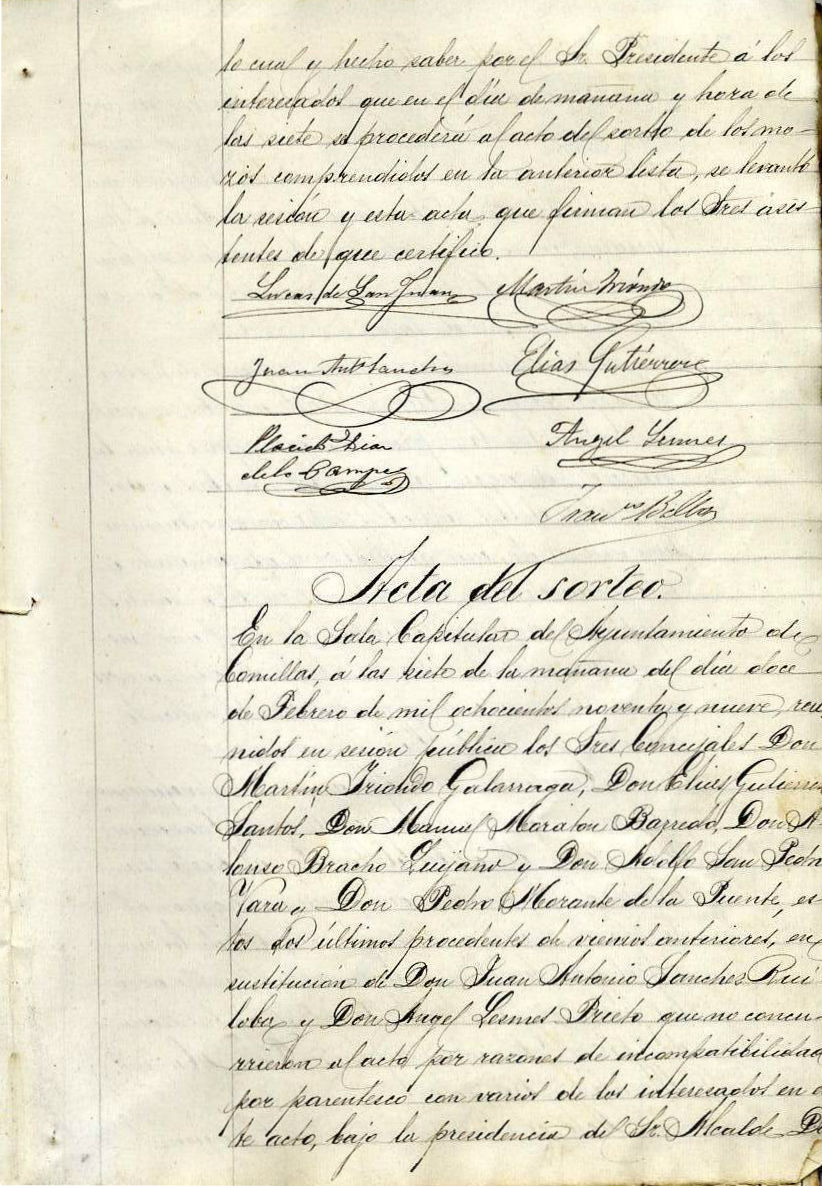 lo cual y hecho saber por el Sr. Presidente á los
interesados que en el día de mañana y hora de
las siete se procederá al acto del sorteo de los mo-
zos comprendidos en la anterior lista, se levantó
la sesión y esta acta, que firman los Sres asis-
tentes de que certifico.
Lucas de San Juan Martín Iriondo
Juan Ant.º Sanches Elias Gutiérrez
Placido Díaz Angel Lesmes
de la Campa
Acta del sorteo.
En la Sala Capitular del Ayuntamiento de
Comillas, á las siete de la mañana del día doce
de Febrero de mil ochocientos noventa y nueve, reu
nidos en sesión pública los Sres Concejales Don
Martín Iriondo Galarraga, Don Elias Gutierrez
Santos, Don Manuel Moraton Barredo, Don A-
lonso Bracho Quijano y Don Adolfo San Pedro
Vara y Don Pedro Morante de la Puente, es-
tos dos últimos procedentes de vienios anteriores, en
sustitución de Don Juan Antonio Sanches Rui
loba y Don Angel Lesmes Prieto que no concu-
rrieron al acto por razones de incompatibilidad
por parentesco con varios de los interesados en e
te acto, bajo la presidencia del Sr. Alcalde Do